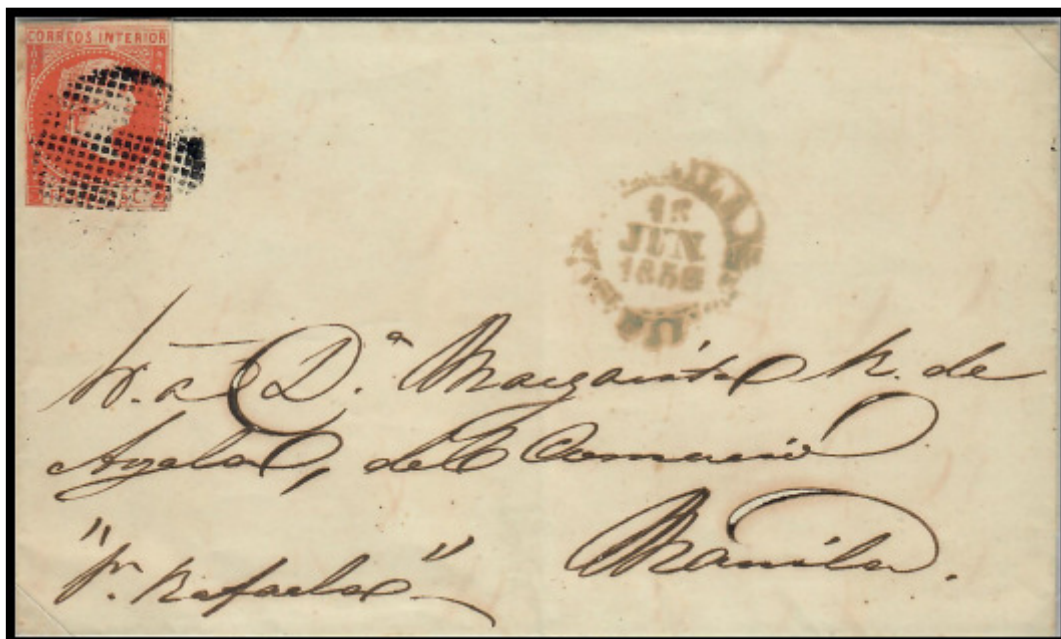 CORREOS INTERIOR
JUN
185
Sr. a D.ª Margarita R. de
Ayala, del Comercio
Manila.
"pr. Rafaela"